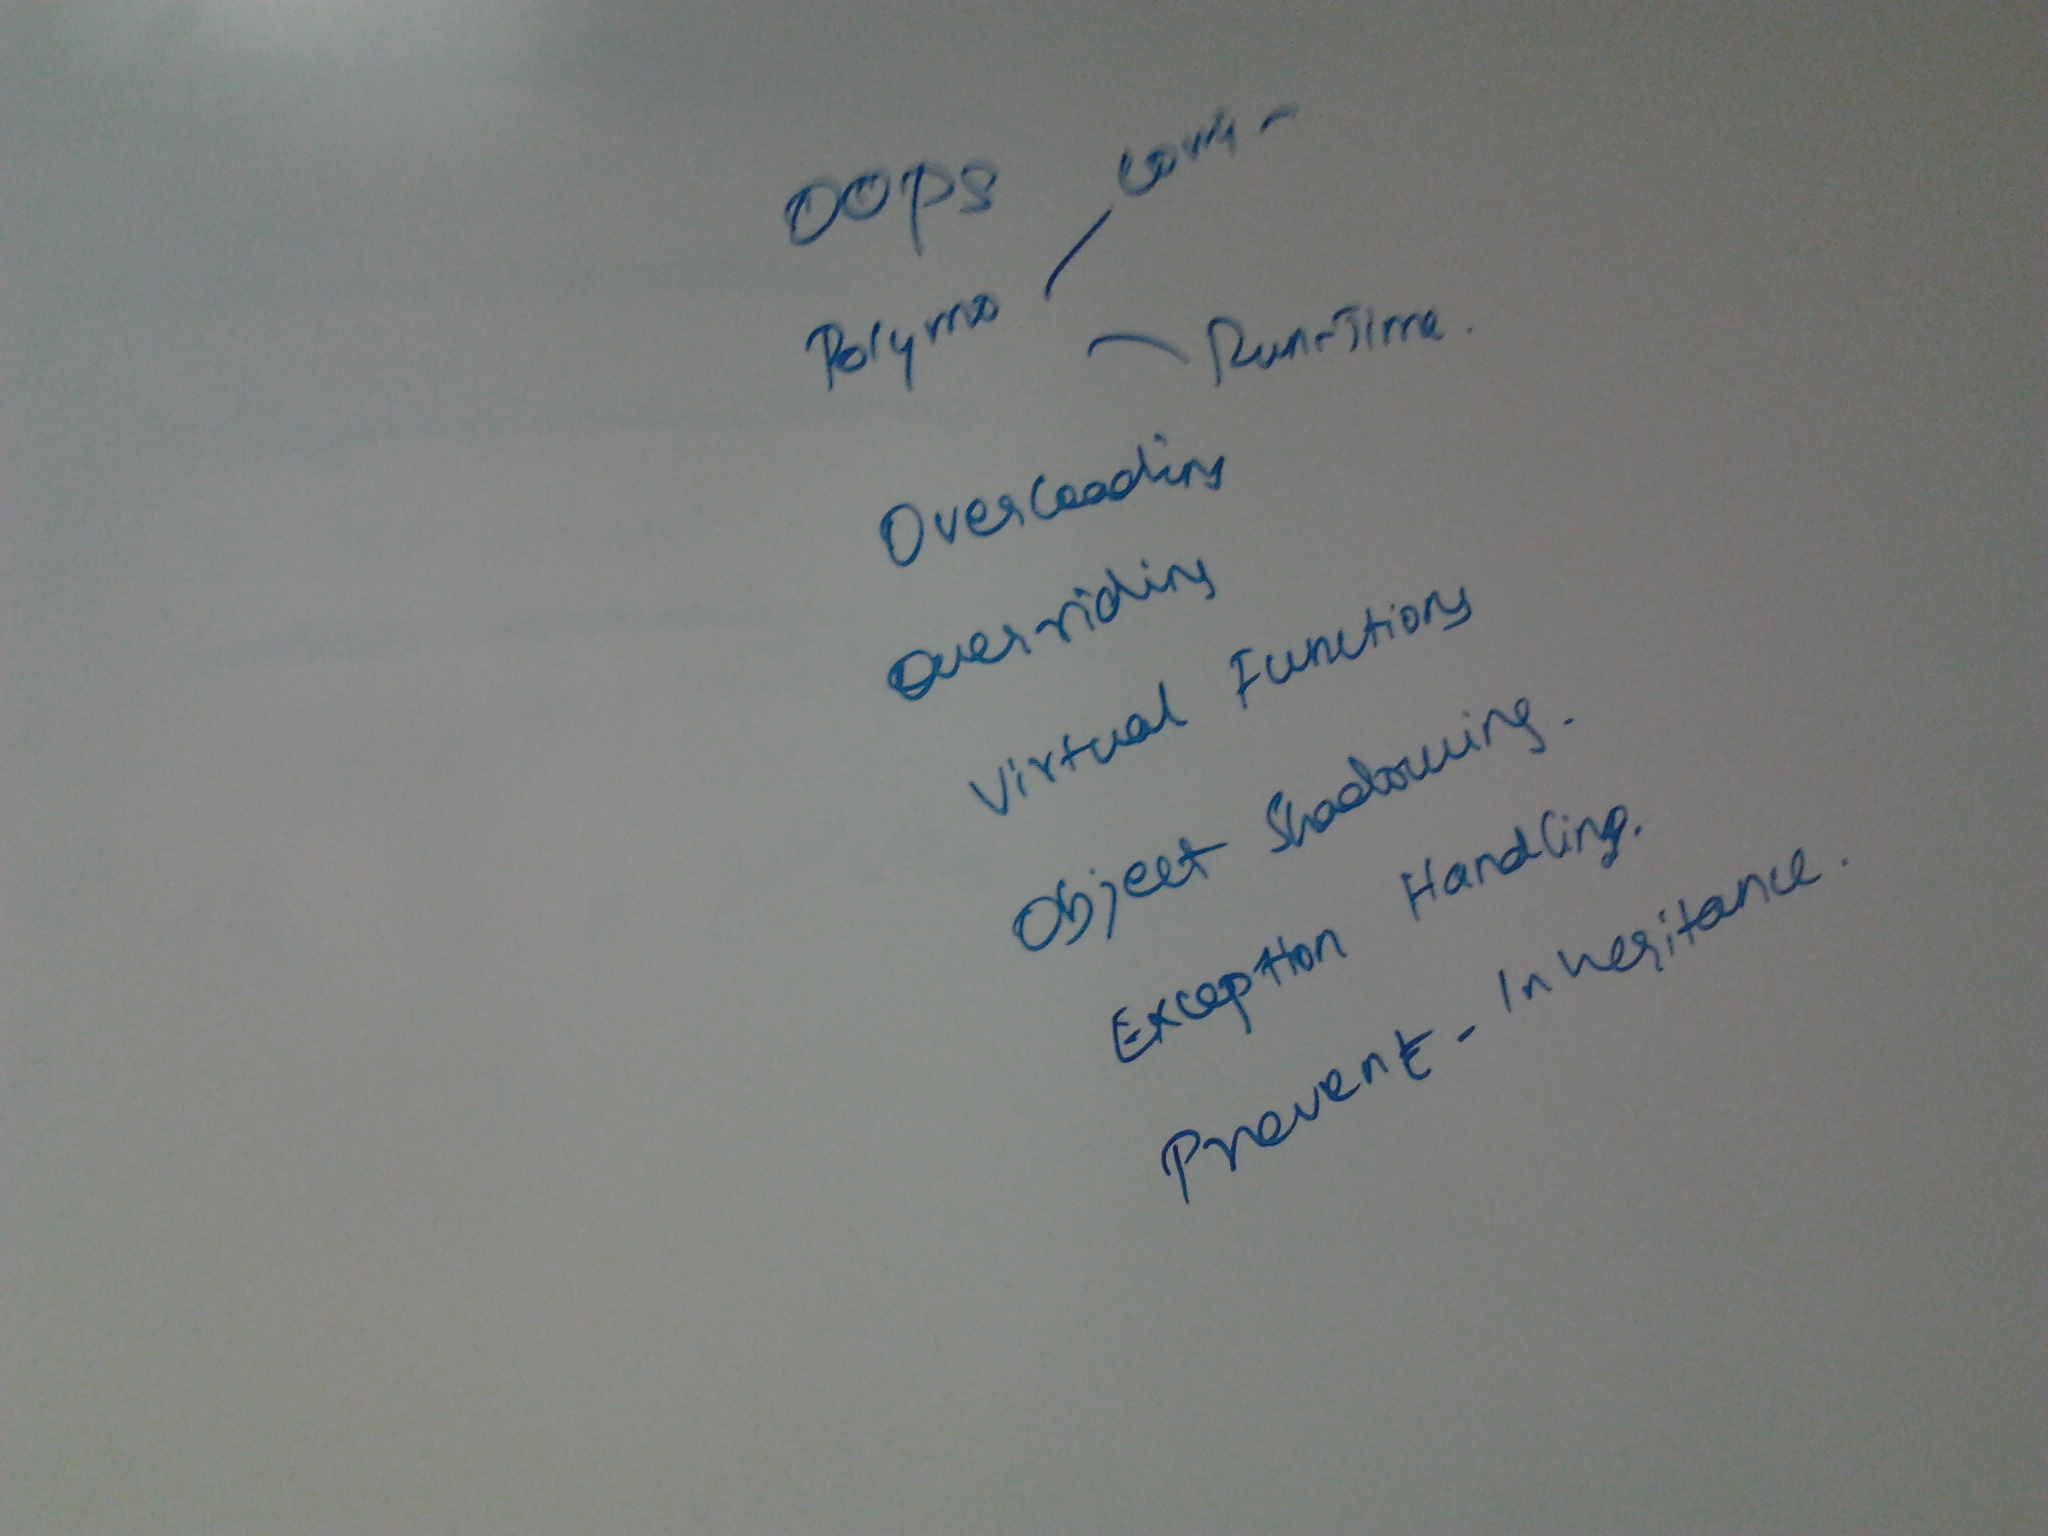 OOPS
Polymo
Com -
Run-Time.
Overloading
Overriding
Virtual Functions
Object Shadowing.
Exception Handling.
Prevent - Inheritance.